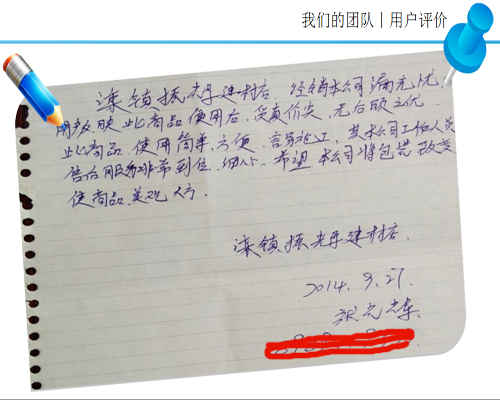 我们的团队|用户评价
滦镇振辉建材店 经销本公司漏无忧,
朋友反映此商品使用后,货真价实,无后顾之忧.
此商品,使用简单,方便,容易施工,其本公司工作人员
售后服务非常到位,细心,希望本公司将包装改变
使商品美观大方.
滦镇振辉建材店.
2014.9.27